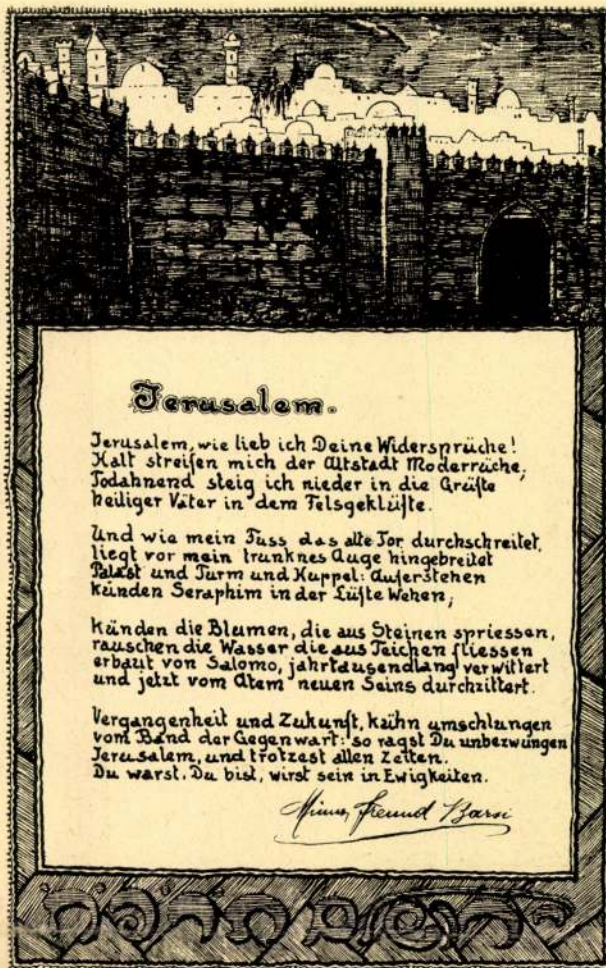 Jerusalem.
Jerusalem, wie lieb ich Deine Widersprüche!
Kalt streifen mich der Altstadt Moderrüche,
Todahnend steig ich nieder in die Grüfte
heiliger Väter in dem Felsgeklüfte.
Und wie mein Fuss das alte Tor durchschreitet,
liegt vor mein trunknes Auge hingebreitet
Palast und Turm und Kuppel: Auferstehen
künden Seraphim in der Lüfte Wehen,
künden die Blumen, die aus Steinen spriessen,
rauschen die Wasser die aus Teichen fliessen
erbaut von Salomo, jahrtausendlang verwittert
und jetzt vom Atem neuen Seins durchzittert.
Vergangenheit und Zukunft, kühn umschlungen
vom Band der Gegenwart: so ragst Du unbezwungen
Jerusalem, und trotzest allen Zeiten.
Du warst, Du bist, wirst sein in Ewigkeiten.
Freund Barsi